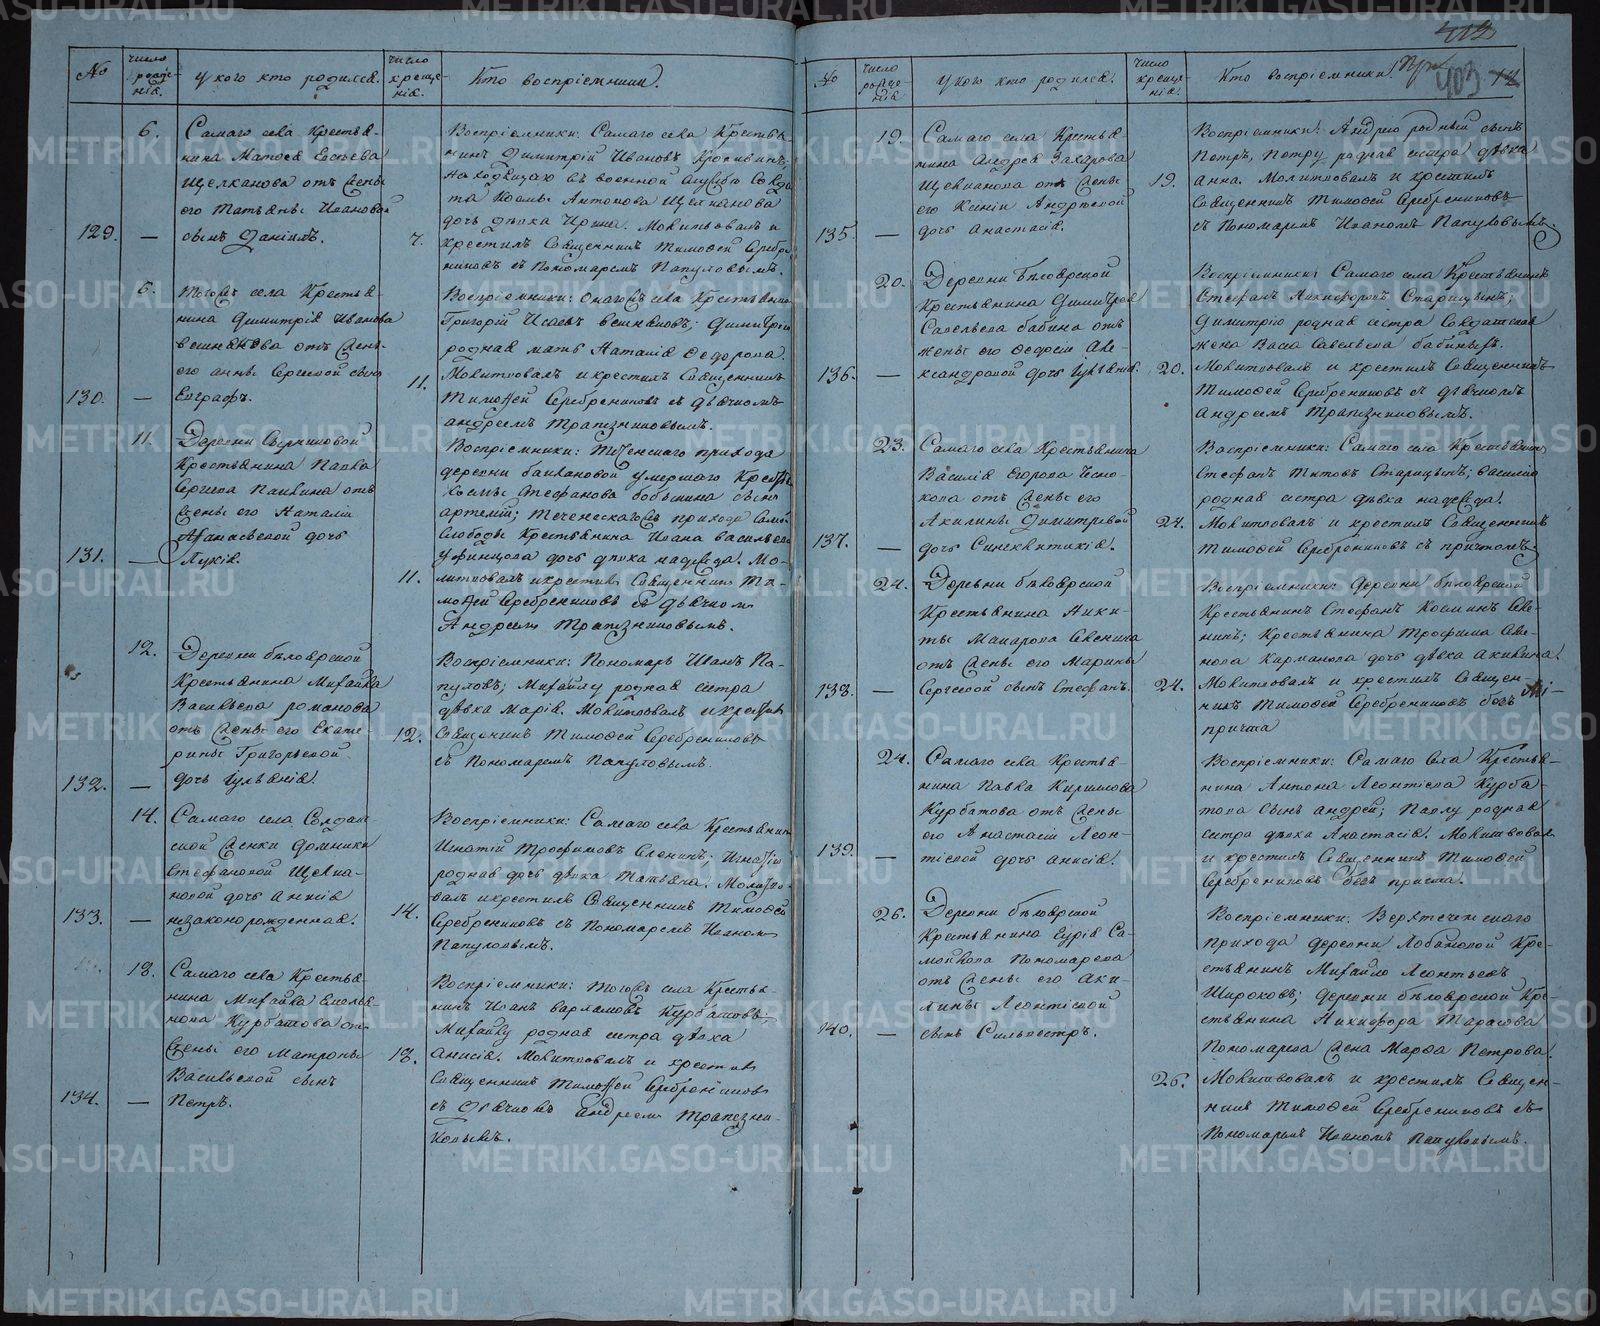 №
число рожде-
нія.
у кого кто родился.
число
креще-
нія.
Кто воспріемники.
6.
Самаго села Крестья-
нина
Щелканова отъ жены
его Татьяны Ивановой
129. —
сынъ Даніилъ.
7.
Воспріемники: Самаго села Крестья-
нинъ Димитрій Ивановъ
находящаго въ военной службѣ Солда-
та Козмы Антонова Щелканова
дочь дѣвка Ирина. Молитвовалъ и
крестилъ Священникъ Тимофей Серебре-
никовъ съ Пономаремъ Папуловымъ.
6.
Тогожъ села Крестья-
нина Димитрія Иванова
отъ жены
его Анны Сергеевой сынъ
130. —
Евграфъ.
11.
Воспріемники: Онагожъ села Крестьянинъ
Григорій Исаевъ Димитрію
родная мать Наталія Федорова.
Молитвовалъ и крестилъ Священникъ
Тимофей Серебрениковъ съ дьячкомъ
Андреемъ Трапезниковымъ.
11.
Деревни
Крестьянина Павла
Сергеева отъ
жены его Наталіи
Афанасьевой дочь
131. —
Гликія.
11.
Воспріемники: Теченскаго прихода
деревни Баклановой умершаго Кресть
Стефанова Бобыкина сынъ
Артемій; Теченскагожъ прихода самой
Слободы Крестьянина Ивана Васильева
Уфинцова дочь дѣвка Надежда. Мо-
литвовалъ и крестилъ Священникъ Ти-
мофей Серебрениковъ съ дьячкомъ
Андреемъ Трапезниковымъ.
12.
Деревни Бѣлоярской
Крестьянина Михайла
Васильева Романова
отъ жены его Екате-
рины Григорьевой
132. —
дочь Іуліанія.
12.
Воспріемники: Пономарь Иванъ Па-
пуловъ; Михайлу родная сестра
дѣвка Марія. Молитвовалъ и крестилъ
Священникъ Тимофей Серебрениковъ
съ Пономаремъ Папуловымъ.
14.
Самаго села Солдат-
ской женки Домники
Стефановой Щелка-
новой дочь Анисія
133. —
незаконорожденная.
14.
Воспріемники: Самаго села Крестьянинъ
Игнатій Трофимовъ Игнатія
родная дочь дѣвка Татьяна. Молитво-
валъ и крестилъ Священникъ Тимофей
Серебрениковъ съ Пономаремъ Иваномъ
Папуловымъ.
18.
Самаго села Крестья-
нина Михайла Емелья-
нова Курбатова отъ
жены его Матроны
Васильевой сынъ
134. —
Петръ.
18.
Воспріемники: Тогожъ села Крестья-
нинъ Иванъ Варламовъ Курбатовъ;
Михайлу родная сестра дѣвка
Анисія. Молитвовалъ и крестилъ
Священникъ Тимофей Серебрениковъ
съ дьячкомъ Андреемъ Трапезни-
ковымъ.
403
№
число
рожде-
нія
у кого кто родился.
число
креще-
нія.
Кто воспріемники.
19.
Самаго села Крестья-
нина Андрея Захарова
Щелканова отъ жены
его Ксеніи Андреевой
135. —
дочь Анастасія.
19.
Воспріемники: Андрею родный сынъ
Петръ, Петру родная сестра дѣвка
Анна. Молитвовалъ и крестилъ
Священникъ Тимофей Серебрениковъ
съ Пономаремъ Иваномъ Папуловымъ.
20.
Деревни Бѣлоярской
Крестьянина Димитрія
Савельева Бабина отъ
жены его Федосьи Але-
136. —
ксандровой дочь Іуліанія.
20.
Воспріемники: Самаго села Крестьянинъ
Стефанъ Никифоровъ Старицынъ;
Димитрію родная сестра Солдатская
жена Васса Савельева Бабиныхъ.
Молитвовалъ и крестилъ Священникъ
Тимофей Серебрениковъ съ дьячкомъ
Андреемъ Трапезниковымъ.
23.
Самаго села Крестьянина
Василія Егорова
отъ жены его
Акилины Димитревой
137. —
дочь Синклитикія.
24.
Воспріемники: Самаго села Крестьянинъ
Стефанъ Титовъ Старицынъ; Василію
родная сестра дѣвка Надежда.
Молитвовалъ и крестилъ Священникъ
Тимофей Серебрениковъ съ причтомъ.
24.
Деревни Бѣлоярской
Крестьянина Ники-
ты Макарова
отъ жены его Марины
138. —
Сергеевой сынъ Стефанъ.
24.
Воспріемники: Деревни Бѣлоярской
Крестьянинъ Стефанъ Козминъ
Крестьянина Трофима
дочь дѣвка Акилина.
Молитвовалъ и крестилъ Священ-
никъ Тимофей Серебрениковъ безъ
причта
24.
Самаго села Крестья-
нина Павла Кириллова
Курбатова отъ жены
его Анастасіи Леон-
139. —
тіевой дочь Анисія.
Воспріемники: Самаго села Крестья-
нина Антона Леонтіева Курба-
това сынъ Андрей; Павлу родная
сестра дѣвка Анастасія. Молитвовалъ
и крестилъ Священникъ Тимофей
Серебрениковъ безъ причта.
26.
Деревни Бѣлоярской
Крестьянина Гурія Са-
мойлова Пономарева
отъ жены его Аки-
лины Леонтіевой
140. —
сынъ Сильвестръ.
26.
Воспріемники: Верхтеченскаго
прихода деревни Лобановой Кре-
стьянинъ Михайло Леонтьевъ
Широковъ; деревни Бѣлоярской Кре-
стьянина Никифора Тарасова
Пономарева жена Марфа Петрова.
Молитвовалъ и крестилъ Священ-
никъ Тимофей Серебрениковъ съ
Пономаремъ Иваномъ Папуловымъ.
METRIKI.GASO-URAL.RU